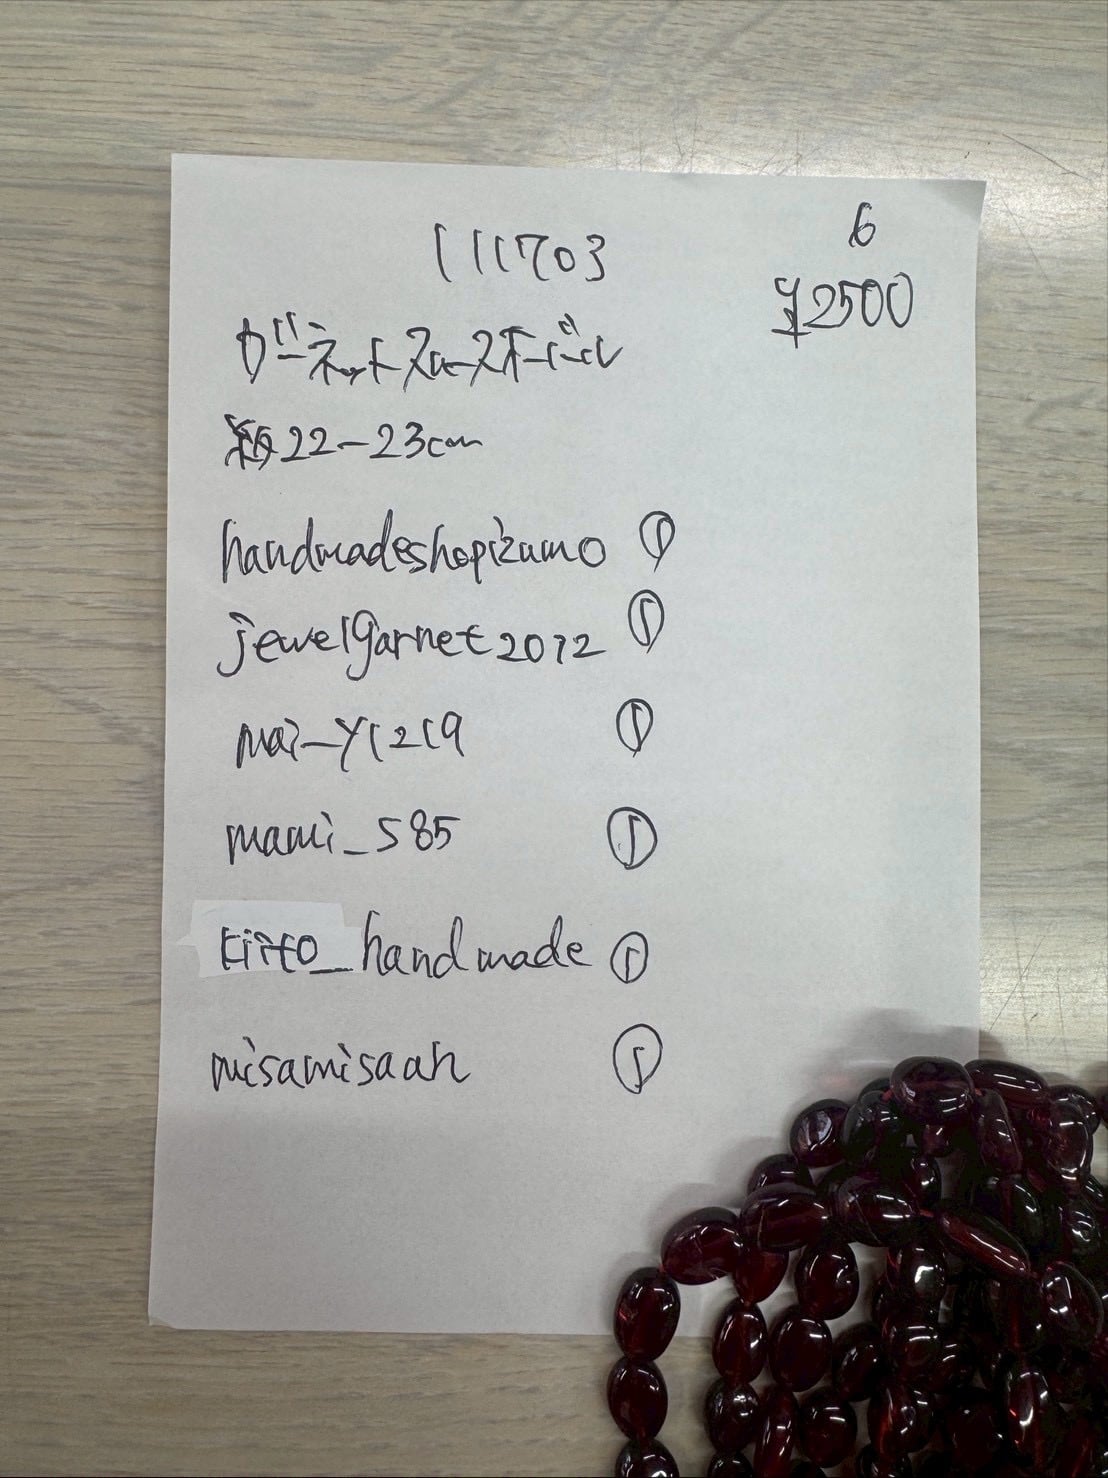 111703
6
¥2500
ガーネットスムースオーバル
約22-23cm
handmadeshopizumo ①
jewelgarnet2012 ①
mai-y1219 ①
mami_s85 ①
kiito_handmade ①
misamisaah ①